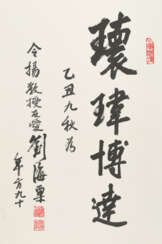 環瑋博達
乙丑九秋為
令揚教授法正
劉海粟
年方九十